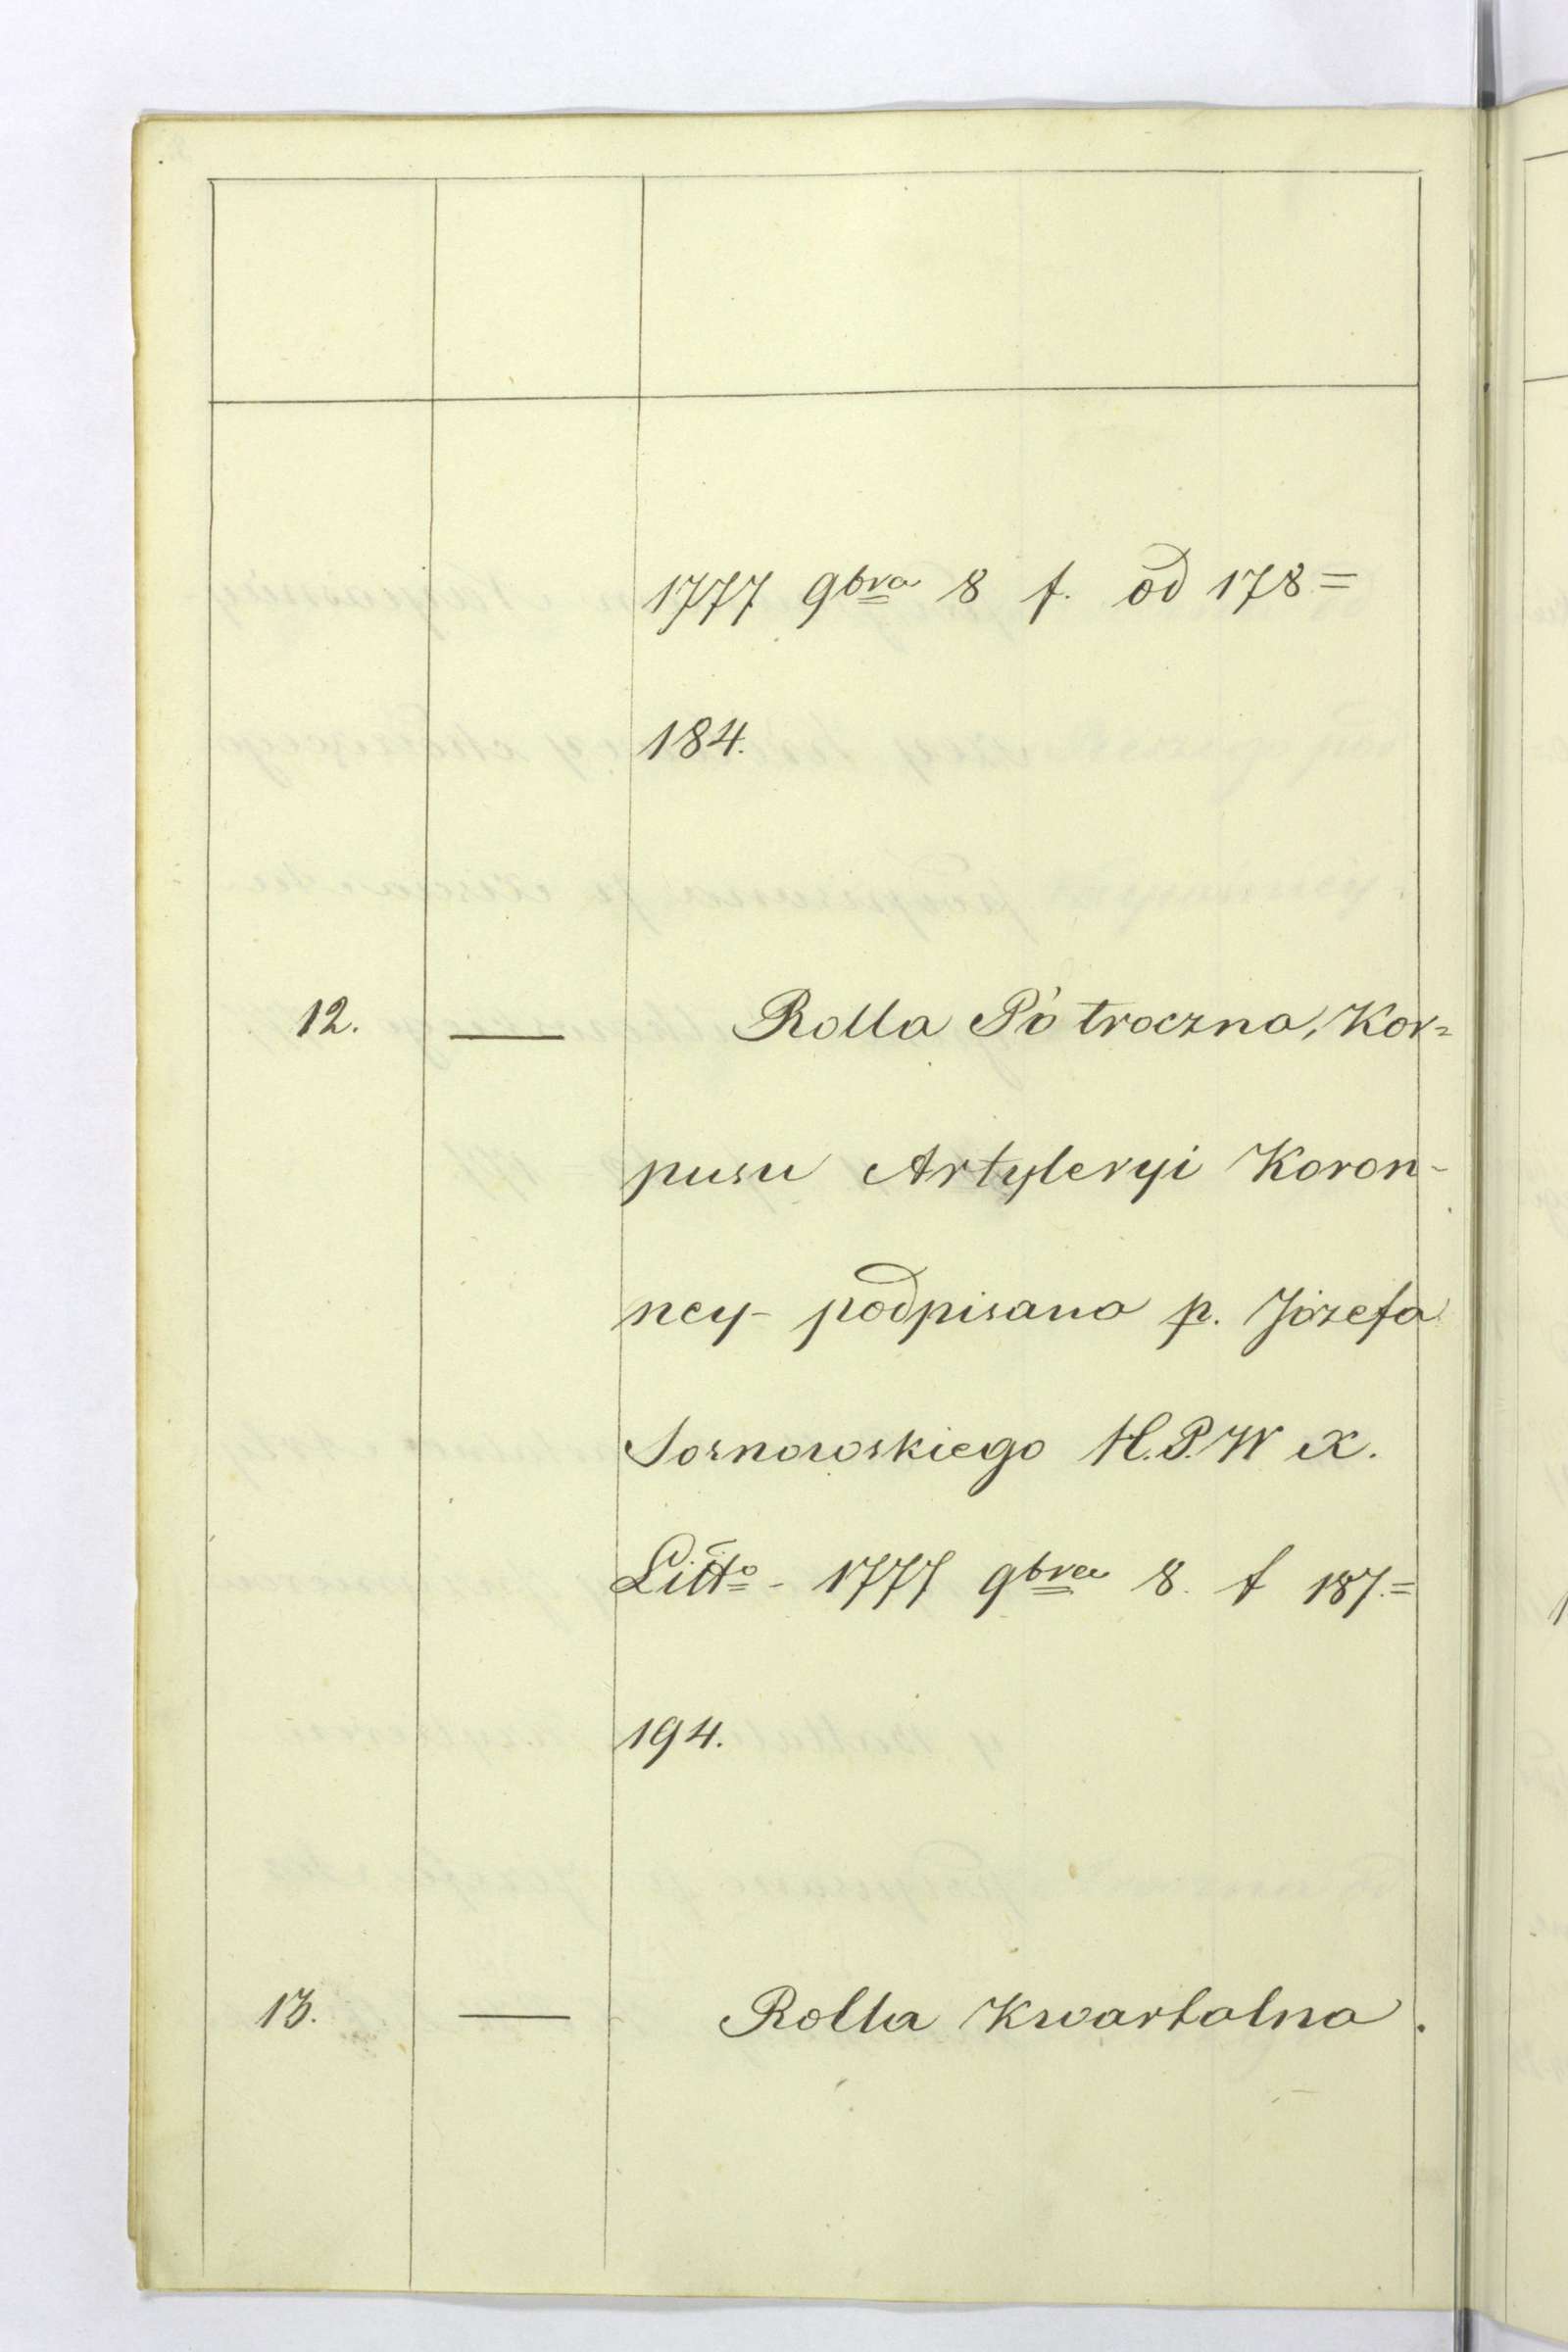 1777 9bra 8 f. od 178=
184.
12. — Rolla Pótroczna, Kor=
pusu Artyleryi Koron-
ney - podpisano p. Józefa
Sosnowskiego H. P. W X.
Litto - 1777 9bra 8. f 187.=
194.
13. — Rolla Kwartalna.